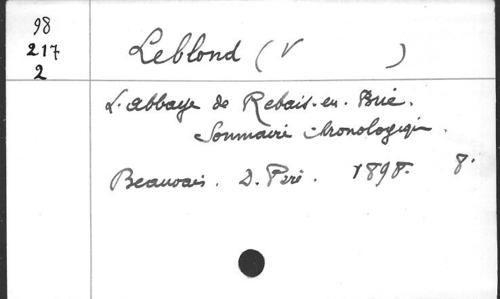 98
217
2
Leblond (V )
L'abbaye de Rebais-en-Brie.
Sommaire chronologique.
Beauvais. D. Père. 1898. 8°